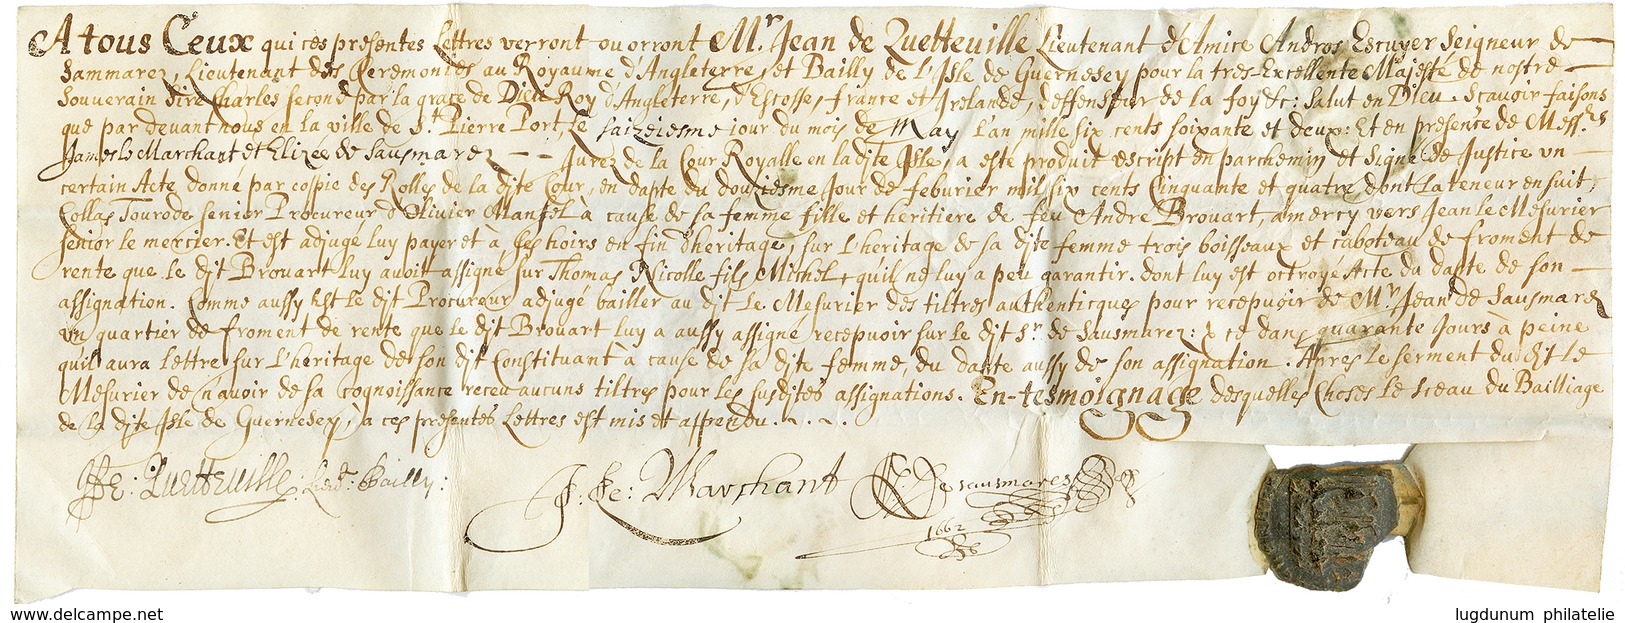 A tous Ceux qui ces presentes Lettres verront ou orront Mr. Jean de Quetteville Lieutenant d'Amice Andros Escuyer Seigneur de
Sammarez, Lieutenant des Ceremonies au Royaume d'Angleterre, et Bailly de L'Isle de Guernesey pour la tres-Excellente Majesté de nostre
Souverain Sire Charles second par la grace de Dieu Roy d'Angleterre, d'Escosse, france et Irelande, deffenseur de la foy &c: Salut en Dieu. Scavoir faisons
que par devant nous en la ville de St. Pierre Port, Le saizeiesme jour du mois de May l'an mille six cents soixante et deux: Et en presence de Messrs
James Le Marchant et Elizee de Sausmarez — — Jurez de la Cour Royalle en la dite Isle, a esté produit escript en parchemin et Signé de Justice un
certain Acte, donné par coppie des Rolles de la dite Cour, en datte du douziesme Jour de feburier mil six cents Cinquante et quatre dont La teneur ensuit,
Collas Tourode senior Procureur d'Olivier Manfel à cause de sa femme fille et heritiere de feu Andre Brouart, amercy vers Jean le Mesurier
senior le mercier. Et est adjugé luy payer et à ses hoirs en fin d'heritage, sur L'heritage de sa dite femme trois boisseaux et caboteau de froment de
rente que le dit Brouart luy avoit assigné sur Thomas Nicolle fils Michel, qu'il ne luy a peu garantir. dont luy est octroye Acte du datte de son
assignation. Comme aussy Est le dit Procureur adjugé bailler au dit Le Mesurier des tiltres authenticques pour recepvoir de Mr Jean de Sausmarez
un quartier de froment de rente que le dit Brouart luy a aussy assigné recepvoir sur le dit Sr. de Sausmarez: & ce dans quarante Jours à peine
qu'il aura Lettre sur L'heritage de son dit Constituant à cause de sa dite femme, du datte aussy de son assignation. Apres le serment du dit Le
Mesurier de n'avoir de sa cognoissance receu aucuns tiltres pour les susdites assignations. En-tesmoignage desquelles Choses Le Sceau du Bailliage
de la dite Isle de Guernesey, à ces presentes Lettres est mis et appendu. . . .
Je: Quetteville: Leut: Bailly:
J: Le: Marchant
De sausmarez
1662
www.delcampe.net
lugdunum philatelie